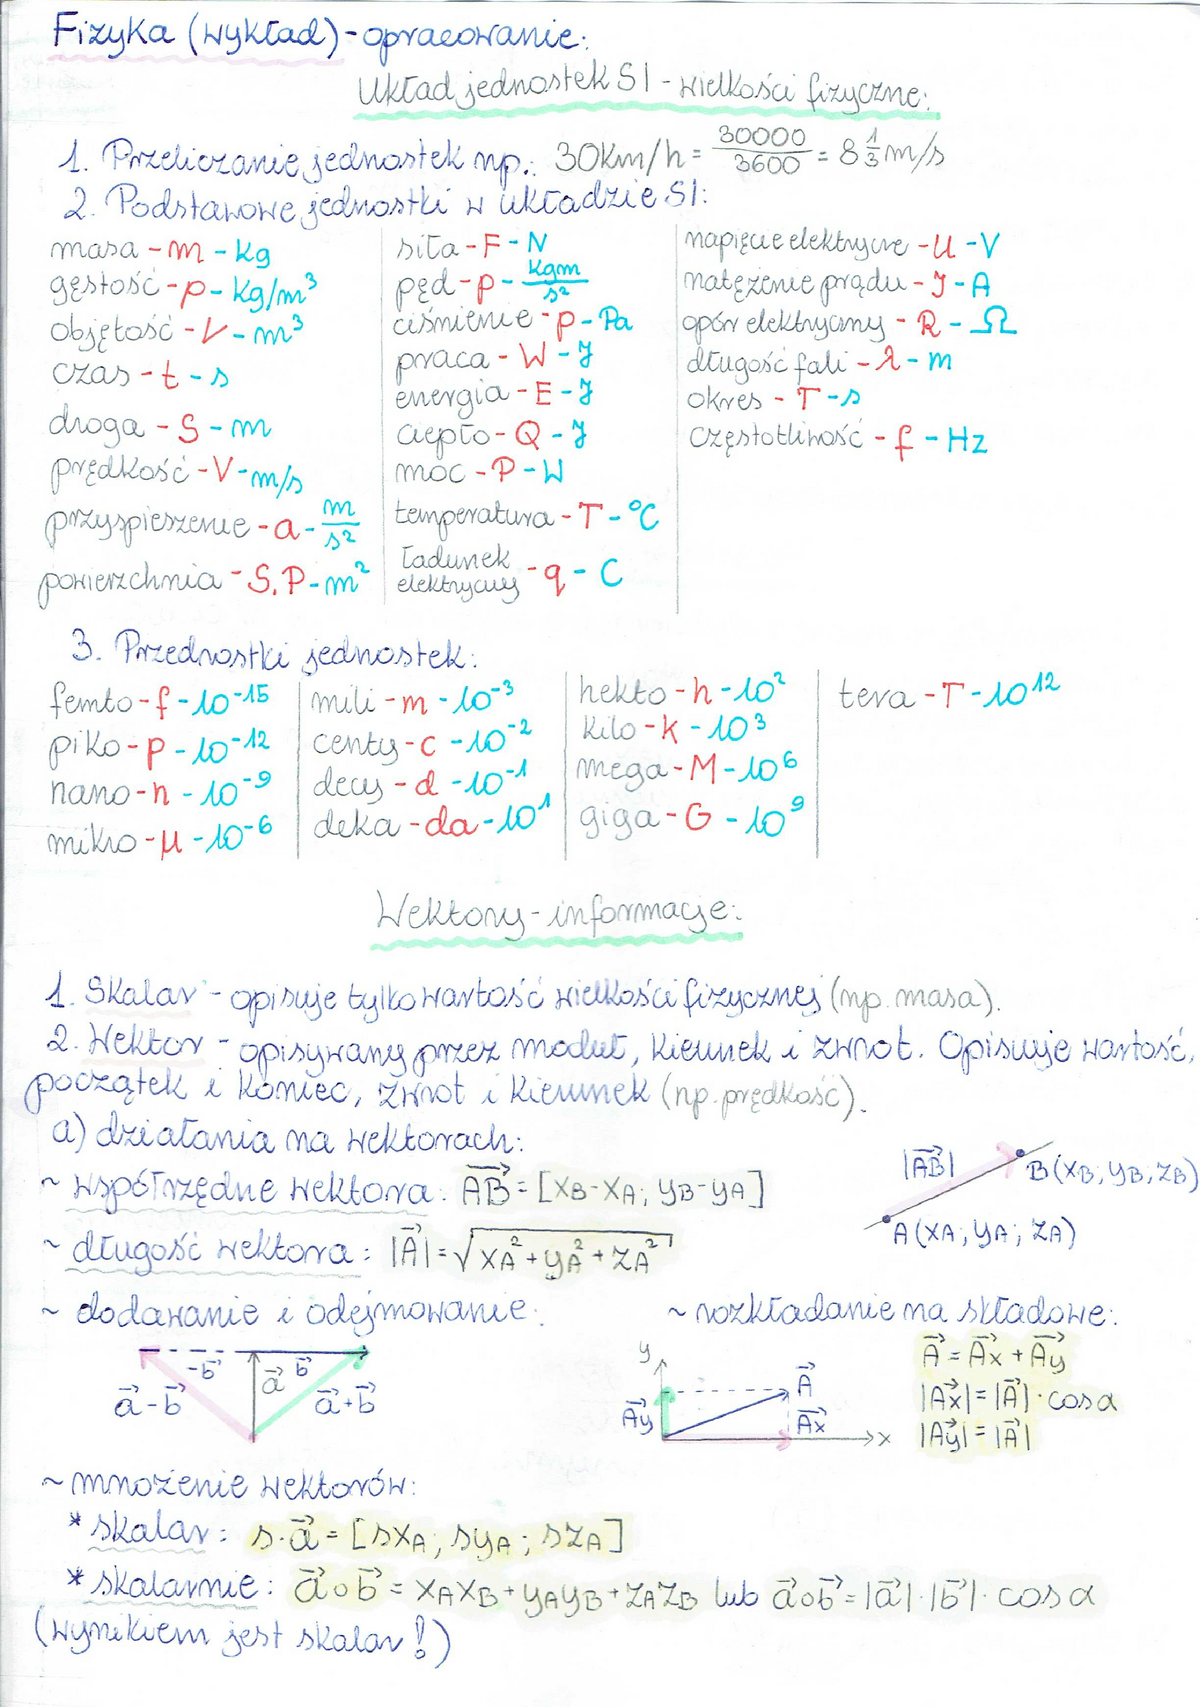 Fizyka (wykład) - opracowanie:
Układ jednostek SI - wielkości fizyczne:
1. Przeliczanie jednostek np.: 30km/h = 30000/3600 = 8 1/3 m/s
2. Podstawowe jednostki w układzie SI:
masa - m - kg
gęstość - p - kg/m³
objętość - V - m³
czas - t - s
droga - S - m
prędkość - V - m/s
przyspieszenie - a - m/s²
powierzchnia - S, P - m²
siła - F - N
pęd - p - kgm/s²
ciśnienie - p - Pa
praca - W - J
energia - E - J
ciepło - Q - J
moc - P - W
temperatura - T - °C
ładunek
elektryczny - q - C
napięcie elektryczne - U - V
natężenie prądu - J - A
opór elektryczny - R - Ω
długość fali - λ - m
okres - T - s
częstotliwość - f - Hz
3. Przedrostki jednostek:
femto - f - 10⁻¹⁵
piko - p - 10⁻¹²
nano - n - 10⁻⁹
mikro - μ - 10⁻⁶
mili - m - 10⁻³
centy - c - 10⁻²
decy - d - 10⁻¹
deka - da - 10¹
hekto - h - 10²
kilo - k - 10³
mega - M - 10⁶
giga - G - 10⁹
tera - T - 10¹²
Wektory - informacje:
1. Skalar - opisuje tylko wartość wielkości fizycznej (np. masa).
2. Wektor - opisywany przez moduł, kierunek i zwrot. Opisuje wartość,
początek i koniec, zwrot i kierunek (np. prędkość).
a) działania na wektorach:
~ współrzędne wektora: A⃗B⃗ = [xB - xA; yB - yA]
|A⃗B⃗|
B (xB; yB; zB)
A (xA; yA; zA)
~ długość wektora: |A⃗| = √(xA² + yA² + zA²)
~ dodawanie i odejmowanie:
-b⃗
a⃗
b⃗
a⃗-b⃗
a⃗+b⃗
~ rozkładanie na składowe:
y
A⃗
A⃗y
A⃗x
x
A⃗ = A⃗x + A⃗y
|A⃗x| = |A⃗| · cos α
|A⃗y| = |A⃗|
~ mnożenie wektorów:
* skalar: s·a⃗ = [sxA; syA; szA]
* skalarnie: a⃗∘b⃗ = xAxB + yAyB + zAzB lub a⃗∘b⃗ = |a⃗|·|b⃗|· cos α
(wynikiem jest skalar!)